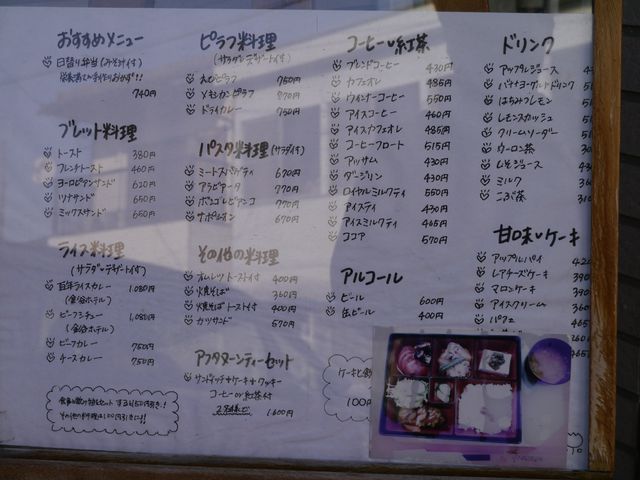 おすすめメニュー
日替り弁当(みそ汁付)
740円
ブレット料理
トースト 380円
フレンチトースト 460円
ヨーロピアンサンド 620円
ツナサンド 650円
ミックスサンド 650円
ライス料理
(サラダ・デザート付)
百年ライスカレー 1,080円
(金谷ホテル)
ビーフシチュー 1,080円
(金谷ホテル)
ビーフカレー 750円
チースカレー 750円
ピラフ料理
(サラダ・デザート付)
えびピラフ 750円
メキシカンピラフ 770円
ドライカレー 750円
パスタ料理(サラダ付)
ミートスパゲティ 670円
アラビアータ 770円
ボンゴレビアンコ 770円
ナポリタン 670円
その他の料理
オムレツ トースト付 400円
焼そば 360円
焼そば トースト付 400円
カツサンド 570円
アフタヌーンティーセット
サンドイッチ+ケーキ+クッキー
コーヒーor紅茶付
1600円
コーヒー 紅茶
ブレンドコーヒー 430円
カフェオレ 485円
ウィンナーコーヒー 550円
アイスコーヒー 460円
アイスカフェオレ 485円
コーヒーフロート 515円
アッサム 430円
ダージリン 430円
ロイヤルミルクティ 550円
アイスティ 430円
アイスミルクティ 465円
ココア 570円
アルコール
ビール 600円
缶ビール 400円
ケーキと飲
100円
ドリンク
アップルジュース
パインヨーグルトドリンク
はちみつレモン
レモンスカッシュ
クリームソーダー
ウーロン茶
しそジュース
ミルク
こぶ茶
甘味 ケーキ
アップルパイ
レアチーズケーキ
マロンケーキ
アイスクリーム
パフェ